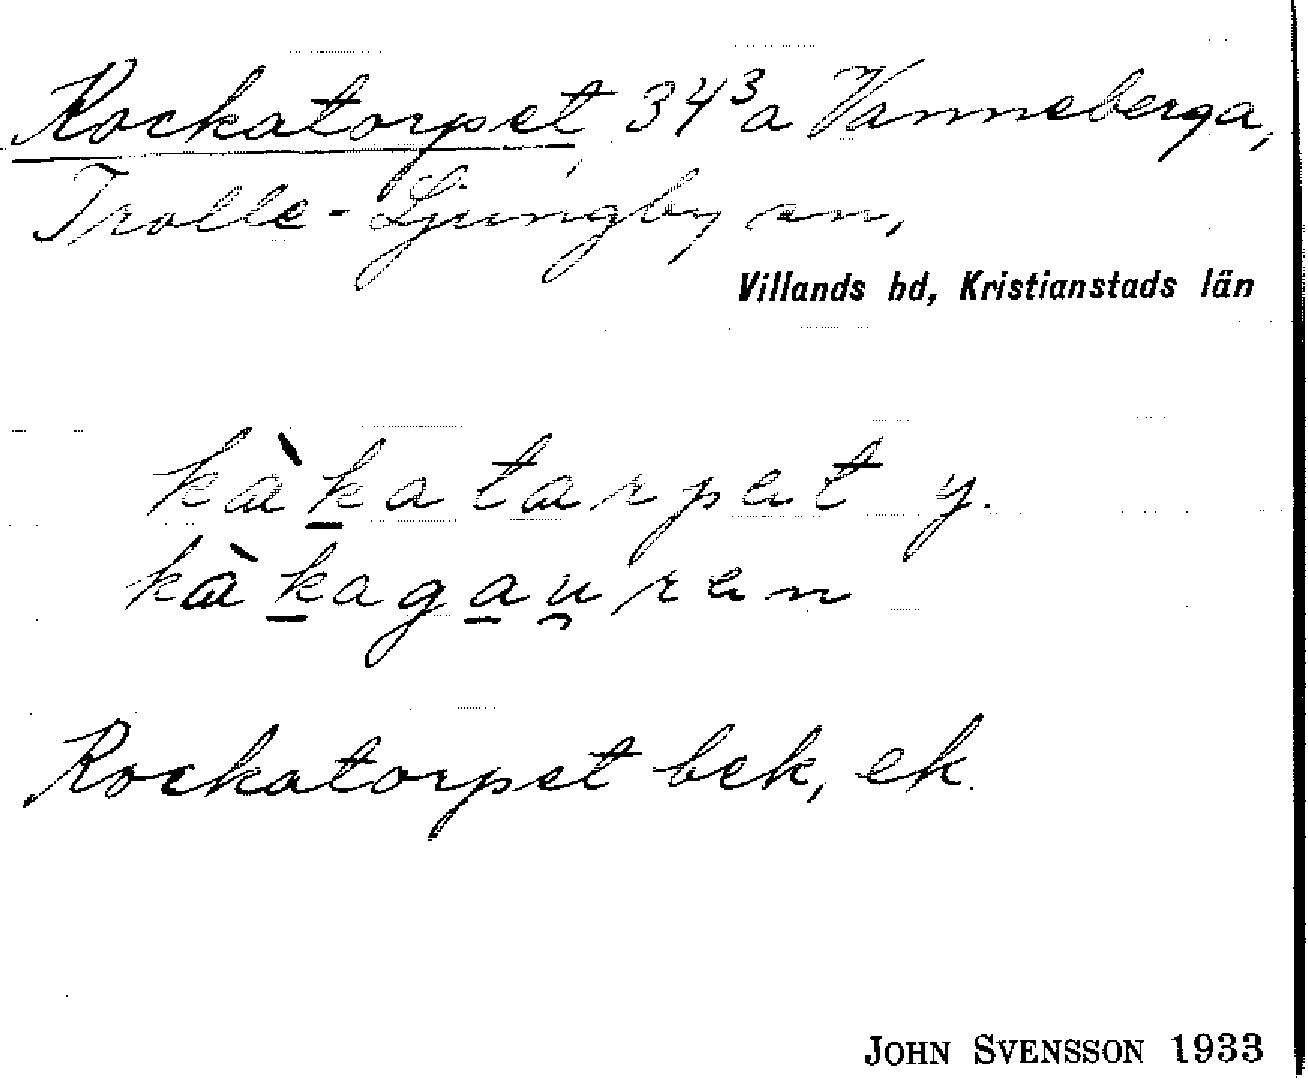 Rockatorpet 34³a Vanneberga,
Trolle-Ljungby sn,
Villands hd, Kristianstads län
kàkatarpet y.
kàkagauren
Rockatorpet bek, ek.
JOHN SVENSSON 1933